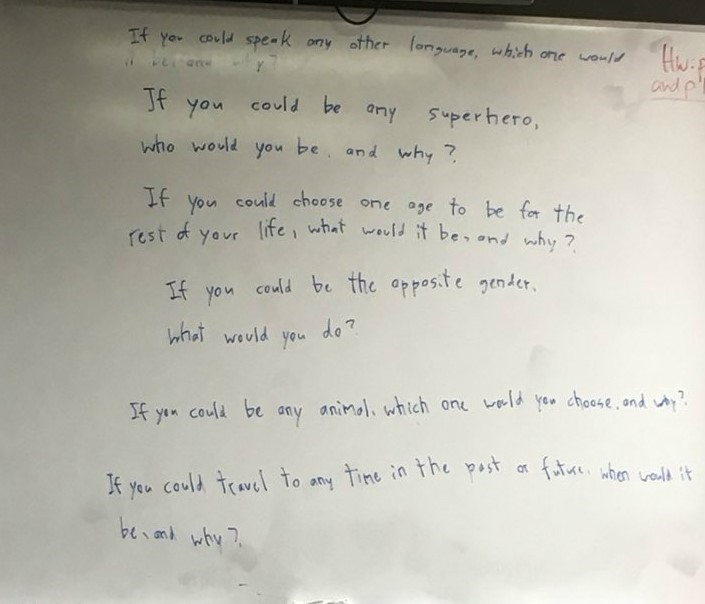 If you could speak any other language, which one would
it be, and why?
Hw:p
and p
If you could be any superhero,
who would you be, and why?
If you could choose one age to be for the
rest of your life, what would it be, and why?
If you could be the opposite gender,
what would you do?
If you could be any animal, which one would you choose, and why?
If you could travel to any time in the past or future, when would it
be, and why?